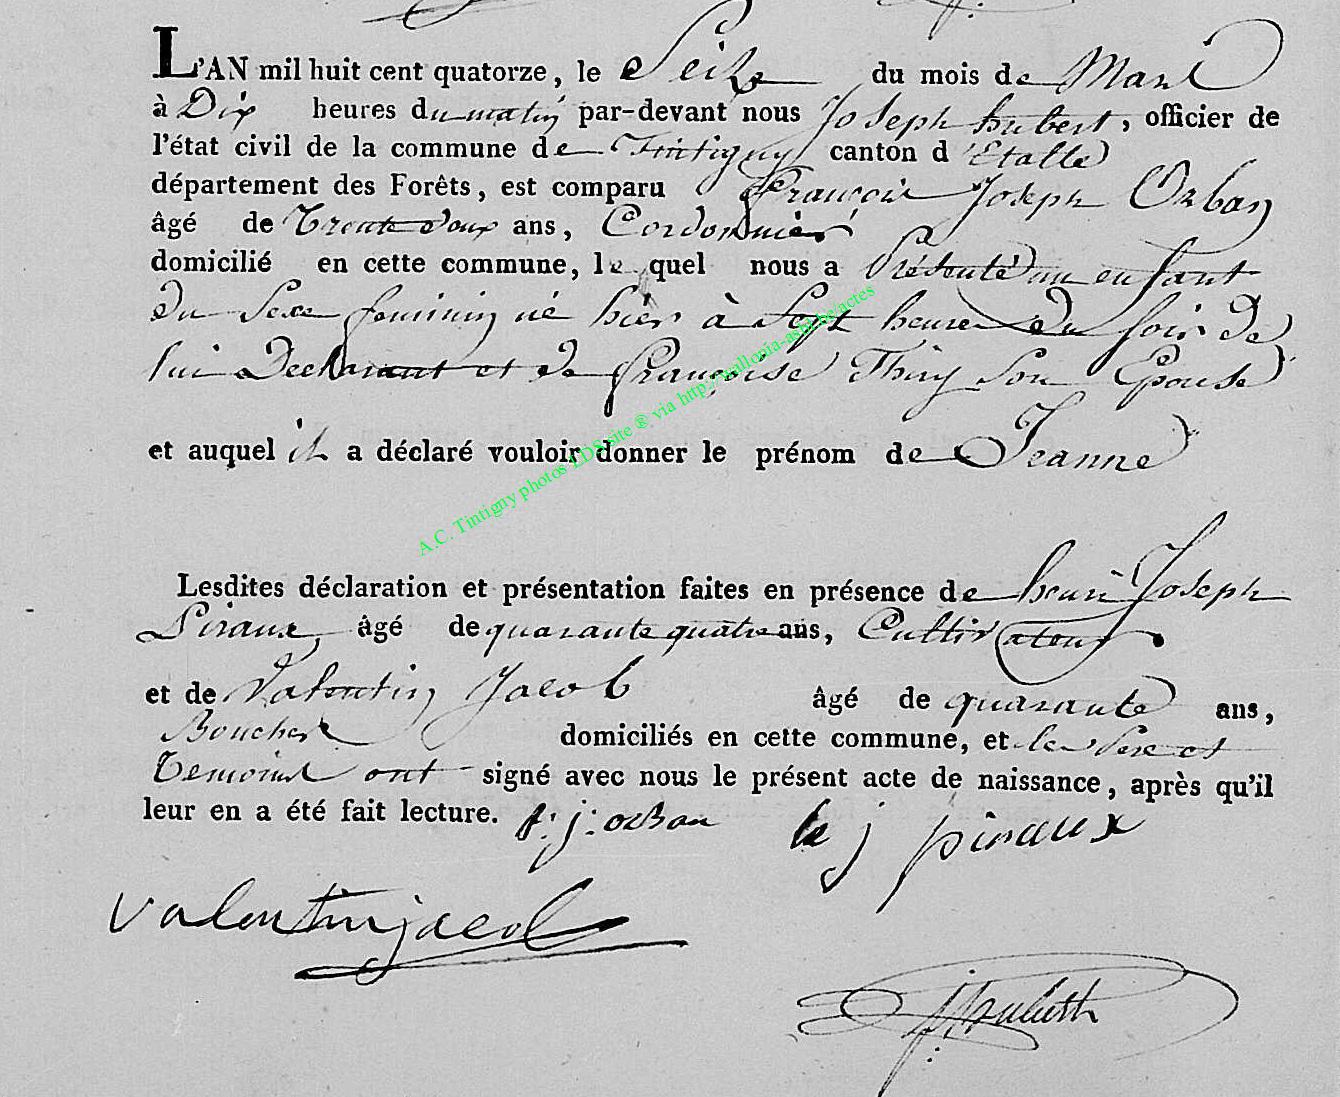 L'AN mil huit cent quatorze, le Seize du mois de Mars
à Dix heures du matin par-devant nous Joseph hubert, officier de
l'état civil de la commune de Tintigny canton d'Etalle
département des Forêts, est comparu François Joseph Orban
âgé de Trente Deux ans, Cordonnier
domicilié en cette commune, le quel nous a Présenté un enfant
du Sexe feminin né hier à Sept heures du soir de
lui Declarant et de françoise Thiry Son Epouse
et auquel il a déclaré vouloir donner le prénom de Jeanne
A.C. Tintigny photos LDS site ® via http://wallonia-asbl.be/actes
Lesdites déclaration et présentation faites en présence de henri Joseph
Piraux, âgé de quarante quatre ans, Cultivateur
et de Valentin Jacob âgé de quarante ans,
Boucher domiciliés en cette commune, et le Père et
Temoins ont signé avec nous le présent acte de naissance, après qu'il
leur en a été fait lecture. f: j: orban h j piraux
valentin jacob
J hubert